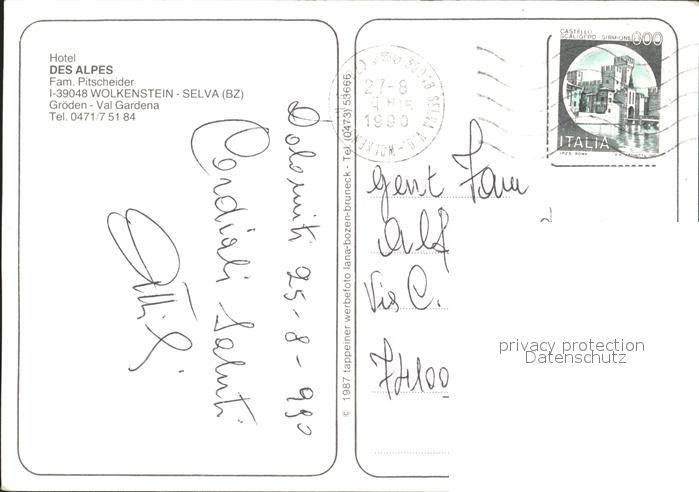 Hotel
DES ALPES
Fam. Pitscheider
I-39048 WOLKENSTEIN - SELVA (BZ)
Gröden - Val Gardena
Tel. 0471/7 51 84
Dolomiti 25-8-990
Cordiali Saluti
© 1987 tappeiner werbefoto lana-bozen-bruneck - Tel. (0473) 53666
39048 SELVA V.G. - WOLKENST
27-8
1990
CASTELLO
SCALIGERO - SIRMIONE 600
ITALIA
I.P.Z.S. ROMA
Gent Fam
Alf
Via C.
74100
privacy protection
Datenschutz